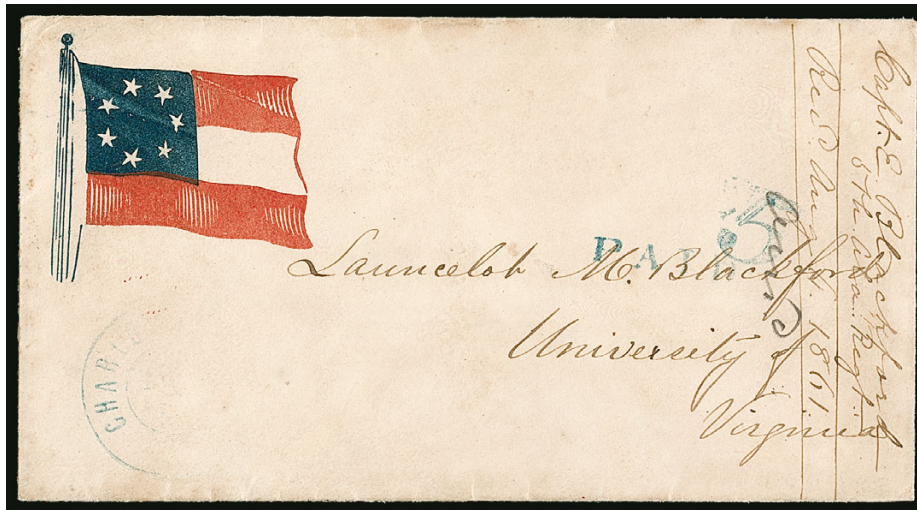 PAID
5
Launcelot M. Blackford
University of
Virginia
CHARL
Capt. E. Blackford
5th Ala. Regt.
Rec'd. Aug 1861